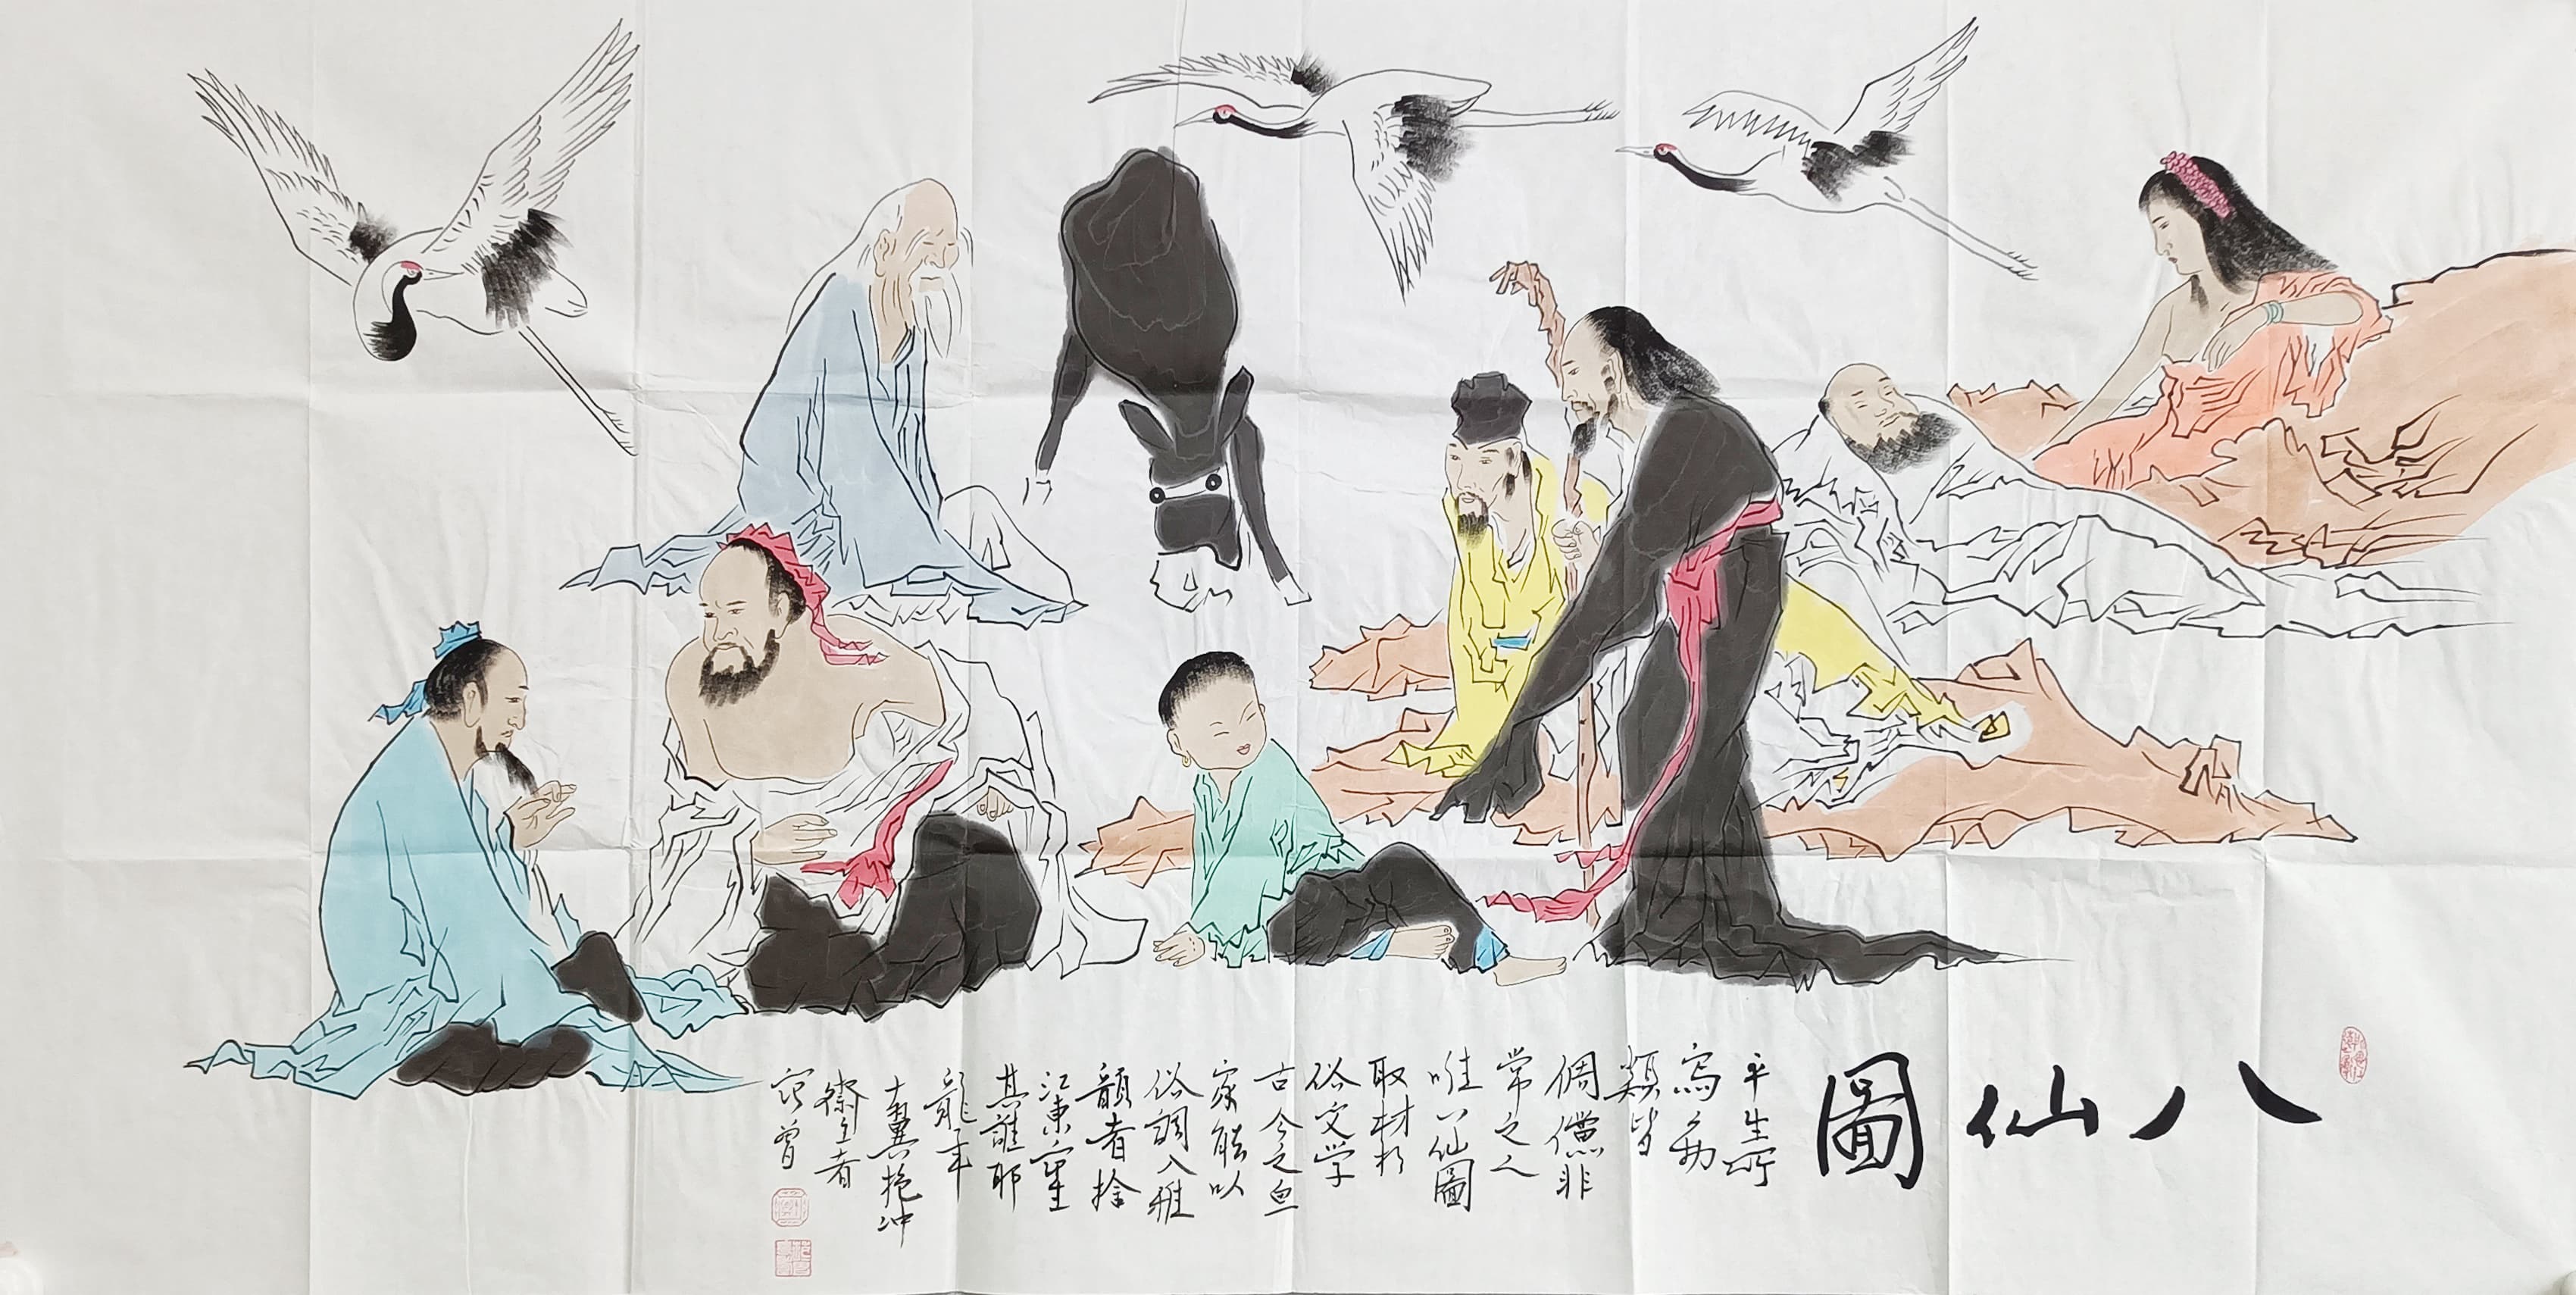 八仙圖
平生所
寫
類皆
倜儻非
常之人
唯八仙圖
取材於
俗文学
古今之
家能以
俗調入雅
韻者捨
江東
其誰耶
龍年
十翼抱冲
齋主者
范曾